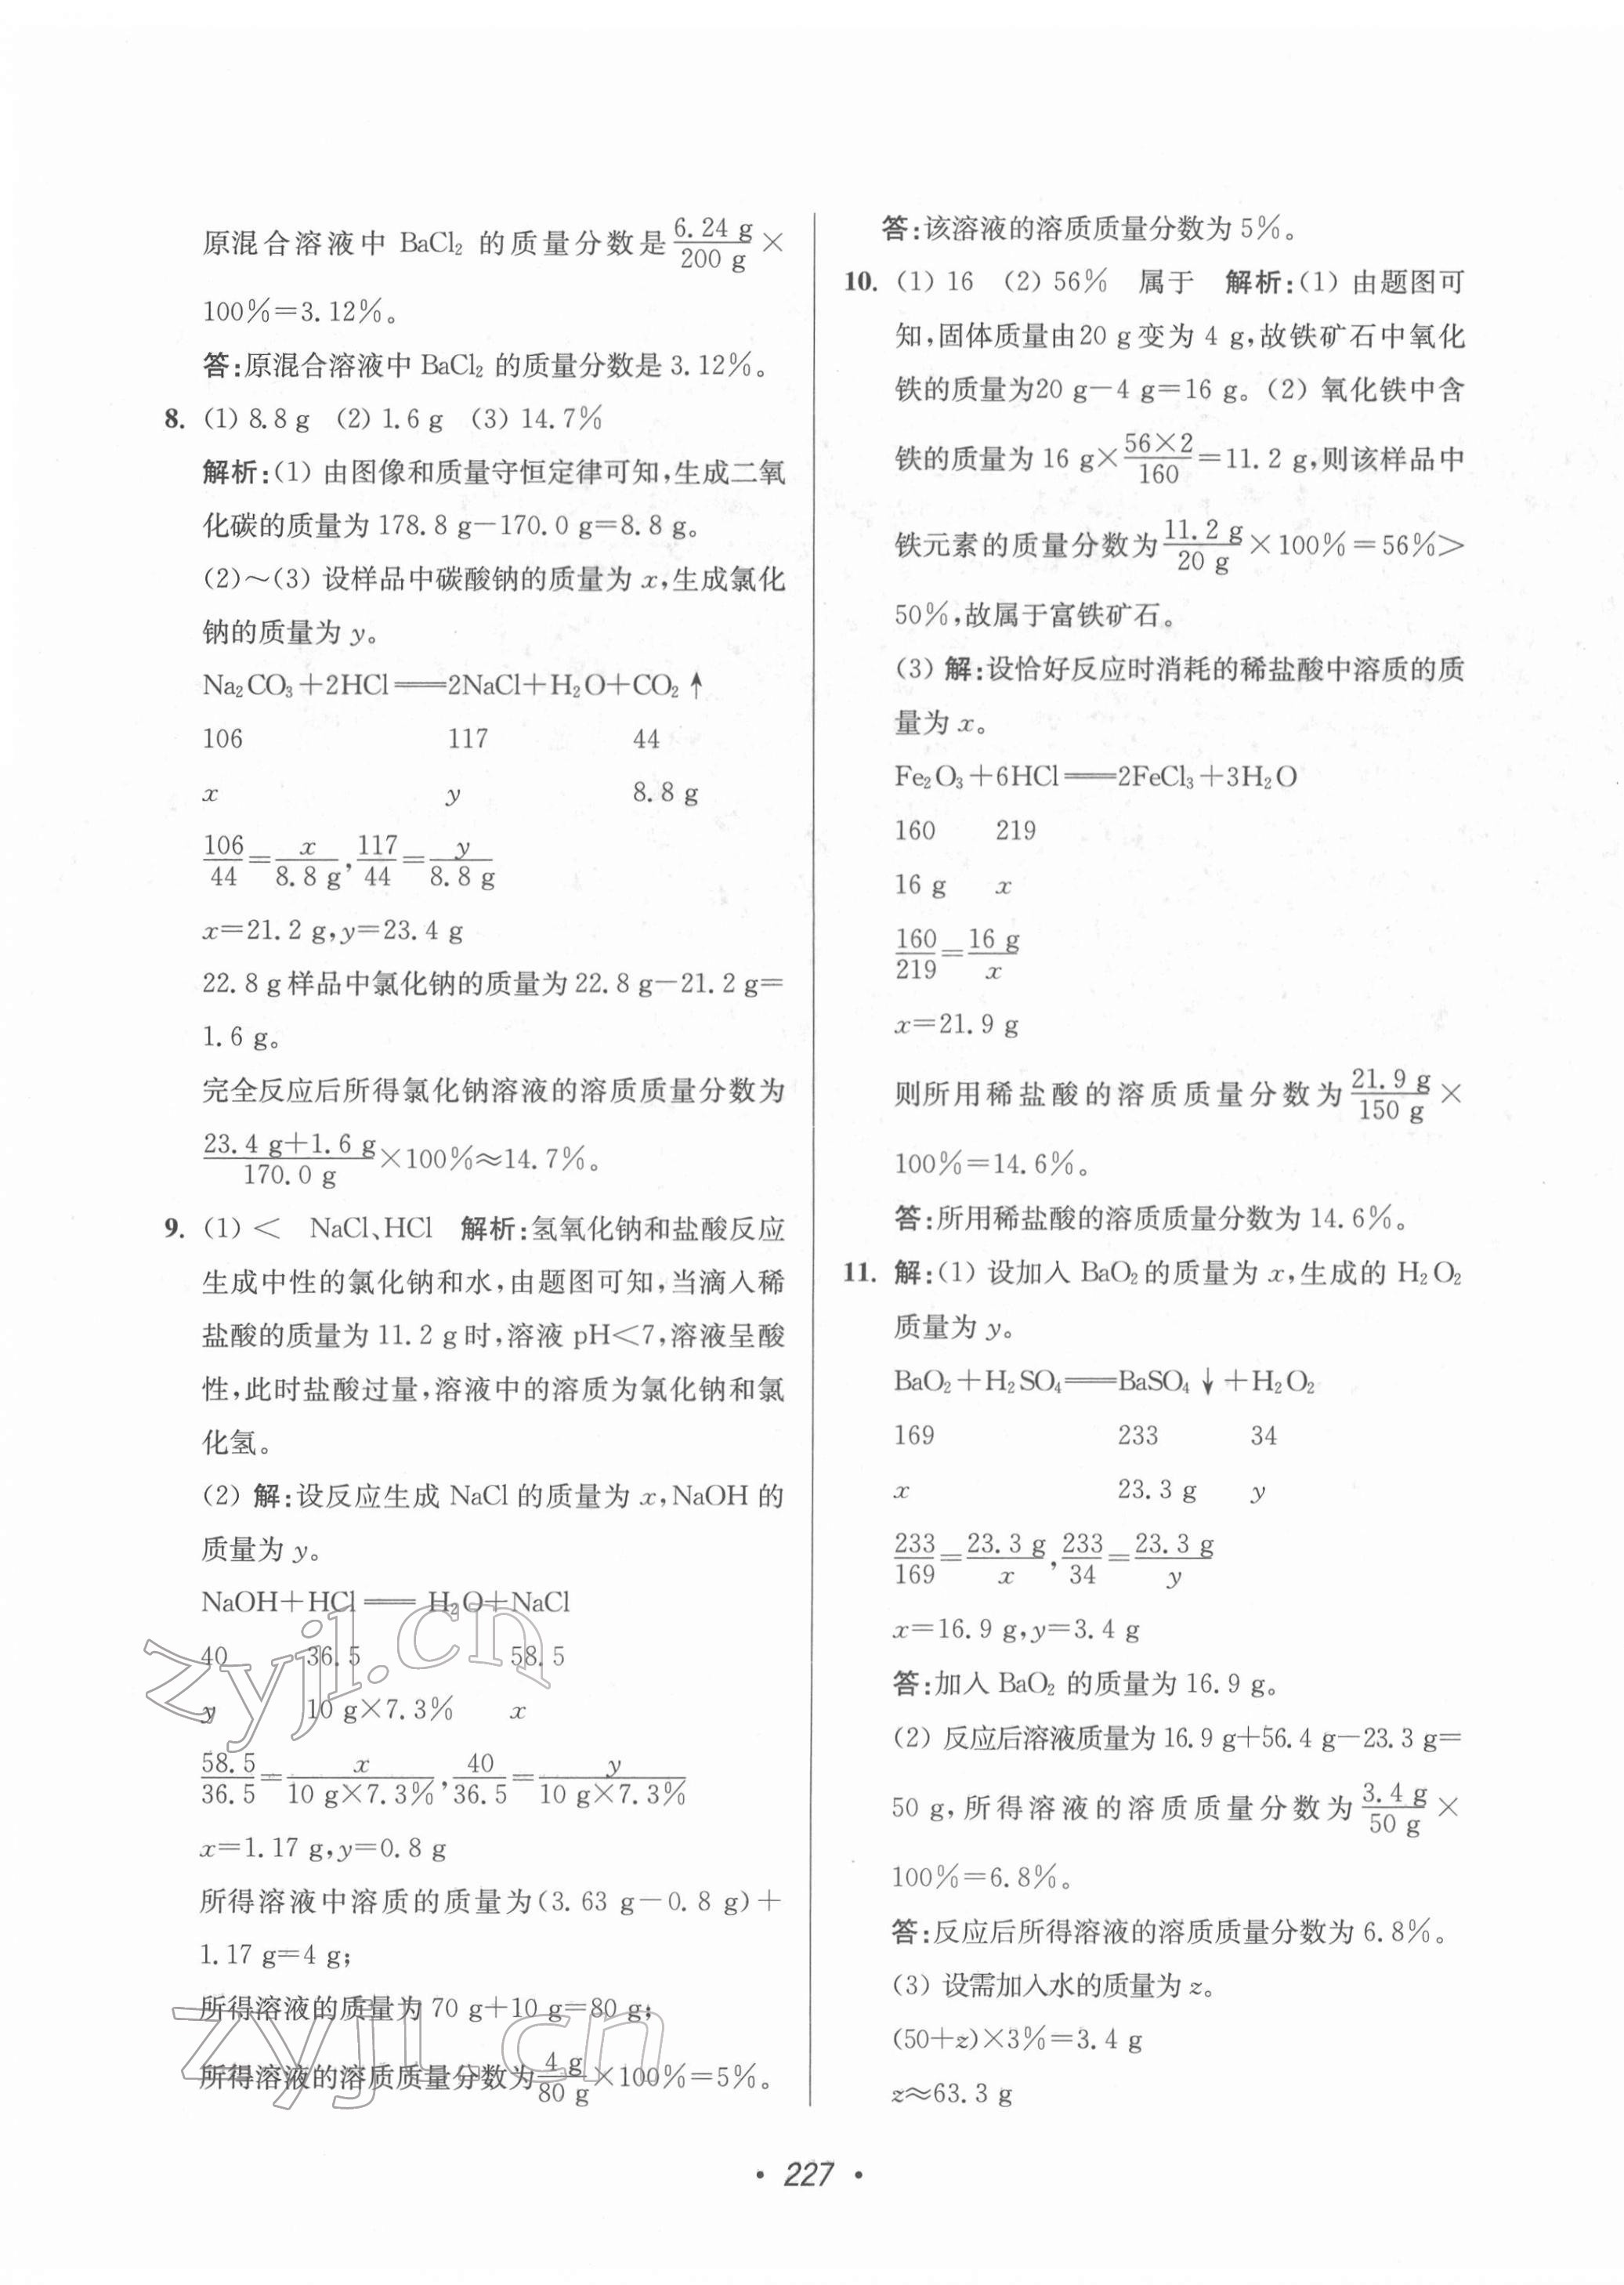 原混合溶液中 BaCl₂ 的质量分数是 6.24 g/200 g ×
100%=3.12%。
答:原混合溶液中 BaCl₂ 的质量分数是 3.12%。
8. (1) 8.8 g (2) 1.6 g (3) 14.7%
解析:(1) 由图像和质量守恒定律可知,生成二氧
化碳的质量为 178.8 g-170.0 g=8.8 g。
(2)~(3) 设样品中碳酸钠的质量为 x,生成氯化
钠的质量为 y。
Na₂CO₃+2HCl══2NaCl+H₂O+CO₂↑
106 117 44
x y 8.8 g
106/44=x/8.8 g,117/44=y/8.8 g
x=21.2 g,y=23.4 g
22.8 g样品中氯化钠的质量为 22.8 g-21.2 g=
1.6 g。
完全反应后所得氯化钠溶液的溶质质量分数为
(23.4 g+1.6 g)/170.0 g×100%≈14.7%。
9. (1) < NaCl、HCl 解析:氢氧化钠和盐酸反应
生成中性的氯化钠和水,由题图可知,当滴入稀
盐酸的质量为 11.2 g 时,溶液 pH<7,溶液呈酸
性,此时盐酸过量,溶液中的溶质为氯化钠和氯
化氢。
(2) 解:设反应生成 NaCl 的质量为 x,NaOH 的
质量为 y。
NaOH+HCl══H₂O+NaCl
40 36.5 58.5
y 10 g×7.3% x
58.5/36.5=x/10 g×7.3%,40/36.5=y/10 g×7.3%
x=1.17 g,y=0.8 g
所得溶液中溶质的质量为(3.63 g-0.8 g)+
1.17 g=4 g;
所得溶液的质量为 70 g+10 g=80 g;
所得溶液的溶质质量分数为 4 g/80 g×100%=5%。
答:该溶液的溶质质量分数为 5%。
10. (1) 16 (2) 56% 属于 解析:(1) 由题图可
知,固体质量由20 g变为 4 g,故铁矿石中氧化
铁的质量为20 g-4 g=16 g。(2) 氧化铁中含
铁的质量为 16 g×56×2/160=11.2 g,则该样品中
铁元素的质量分数为 11.2 g/20 g×100%=56%>
50%,故属于富铁矿石。
(3) 解:设恰好反应时消耗的稀盐酸中溶质的质
量为 x。
Fe₂O₃+6HCl══2FeCl₃+3H₂O
160 219
16 g x
160/219=16 g/x
x=21.9 g
则所用稀盐酸的溶质质量分数为 21.9 g/150 g ×
100%=14.6%。
答:所用稀盐酸的溶质质量分数为 14.6%。
11. 解:(1) 设加入 BaO₂ 的质量为 x,生成的 H₂O₂
质量为 y。
BaO₂+H₂SO₄══BaSO₄↓+H₂O₂
169 233 34
x 23.3 g y
233/169=23.3 g/x,233/34=23.3 g/y
x=16.9 g,y=3.4 g
答:加入 BaO₂ 的质量为 16.9 g。
(2) 反应后溶液质量为 16.9 g+56.4 g-23.3 g=
50 g,所得溶液的溶质质量分数为 3.4 g/50 g ×
100%=6.8%。
答:反应后所得溶液的溶质质量分数为 6.8%。
(3) 设需加入水的质量为 z。
(50+z)×3%=3.4 g
z≈63.3 g
· 227 ·
zyjl.cn
zyjl.cn